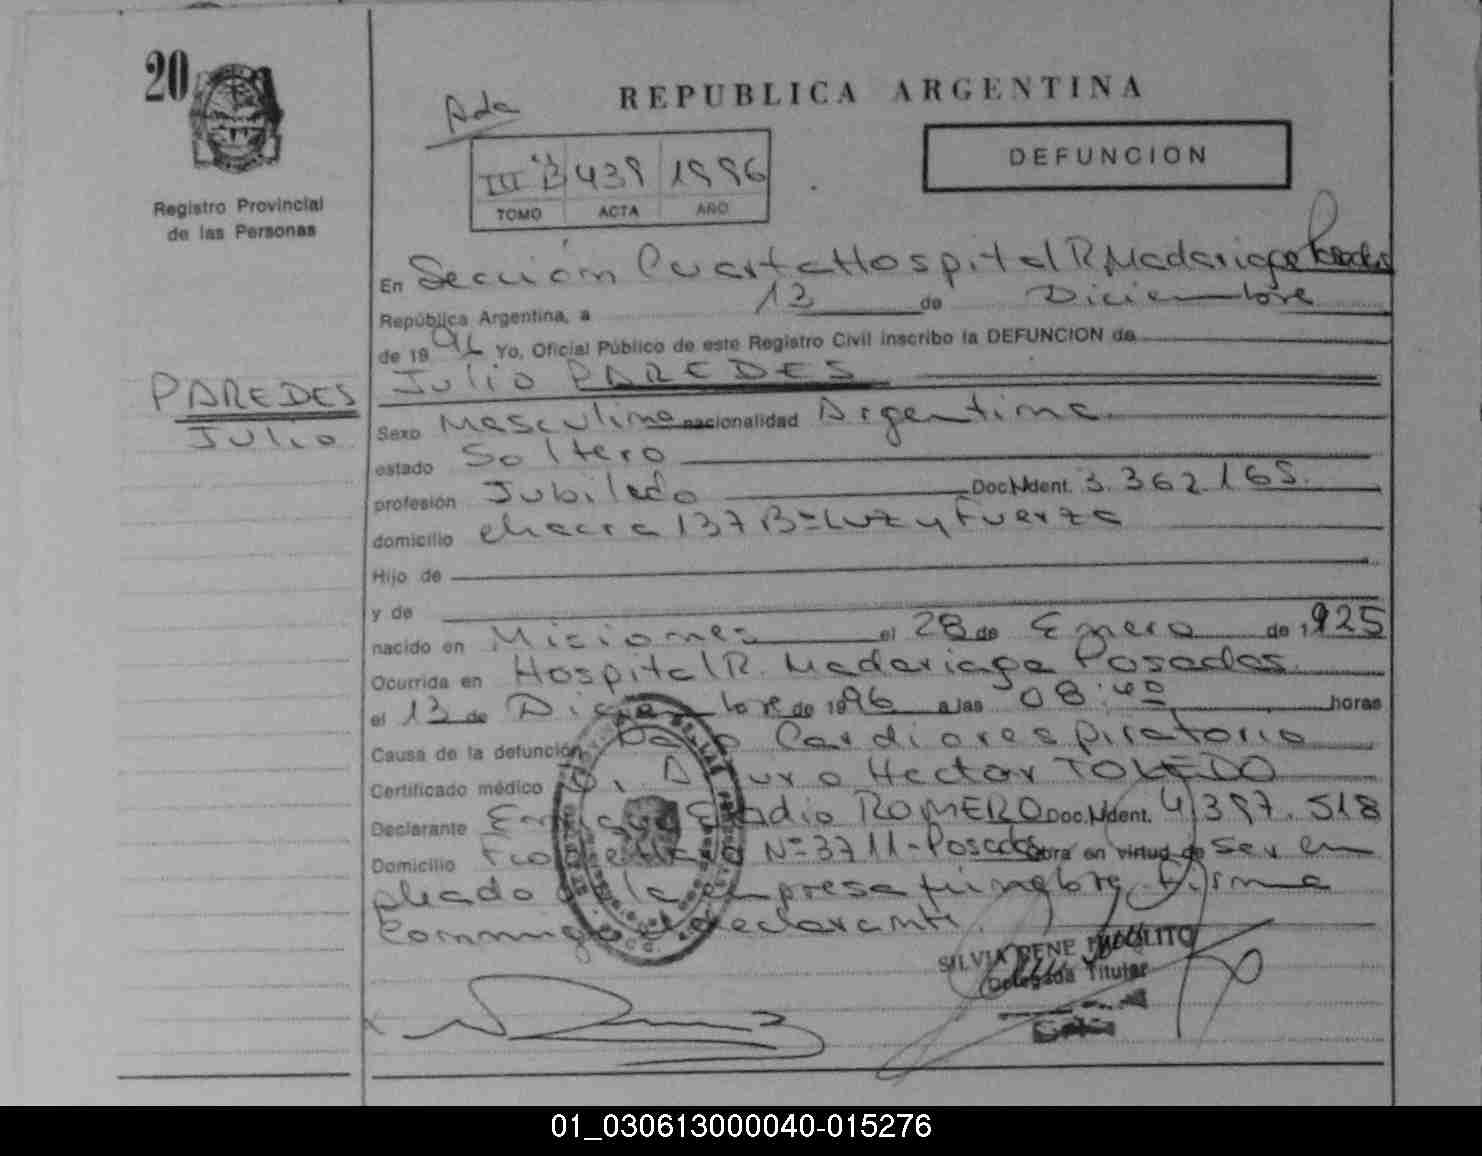 20
Registro Provincial
de las Personas
PAREDES
Julio
Ada
REPUBLICA ARGENTINA
DEFUNCION
III "B" 439 1996
TOMO ACTA AÑO
En Sección Cuarta Hospital R. Madariaga Posadas
República Argentina, a 13 de Diciembre
de 1996 Yo, Oficial Público de este Registro Civil inscribo la DEFUNCION de
Julio PAREDES
Sexo Masculino nacionalidad Argentina
estado Soltero
profesión Jubilado Doc. Ident. 3.362.165.
domicilio chacra 137 Bº Luz y Fuerza
Hijo de
y de
nacido en Misiones el 28 de Enero de 1925
Ocurrida en Hospital R. Madariaga Posadas
el 13 de Diciembre de 1996 a las 08:40 horas
Causa de la defunción Paro Cardiorespiratorio
Certificado médico Dr. Arturo Hector TOLEDO
Declarante ROMERO Doc. Ident. 4.397.518
Domicilio Nº 3711-Posadas obra en virtud de ser em
pleado de la empresa fúnebre. Firma
conmigo el declarante.
SILVIA IRENE HIPOLITO
Delegada Titular
01_030613000040-015276